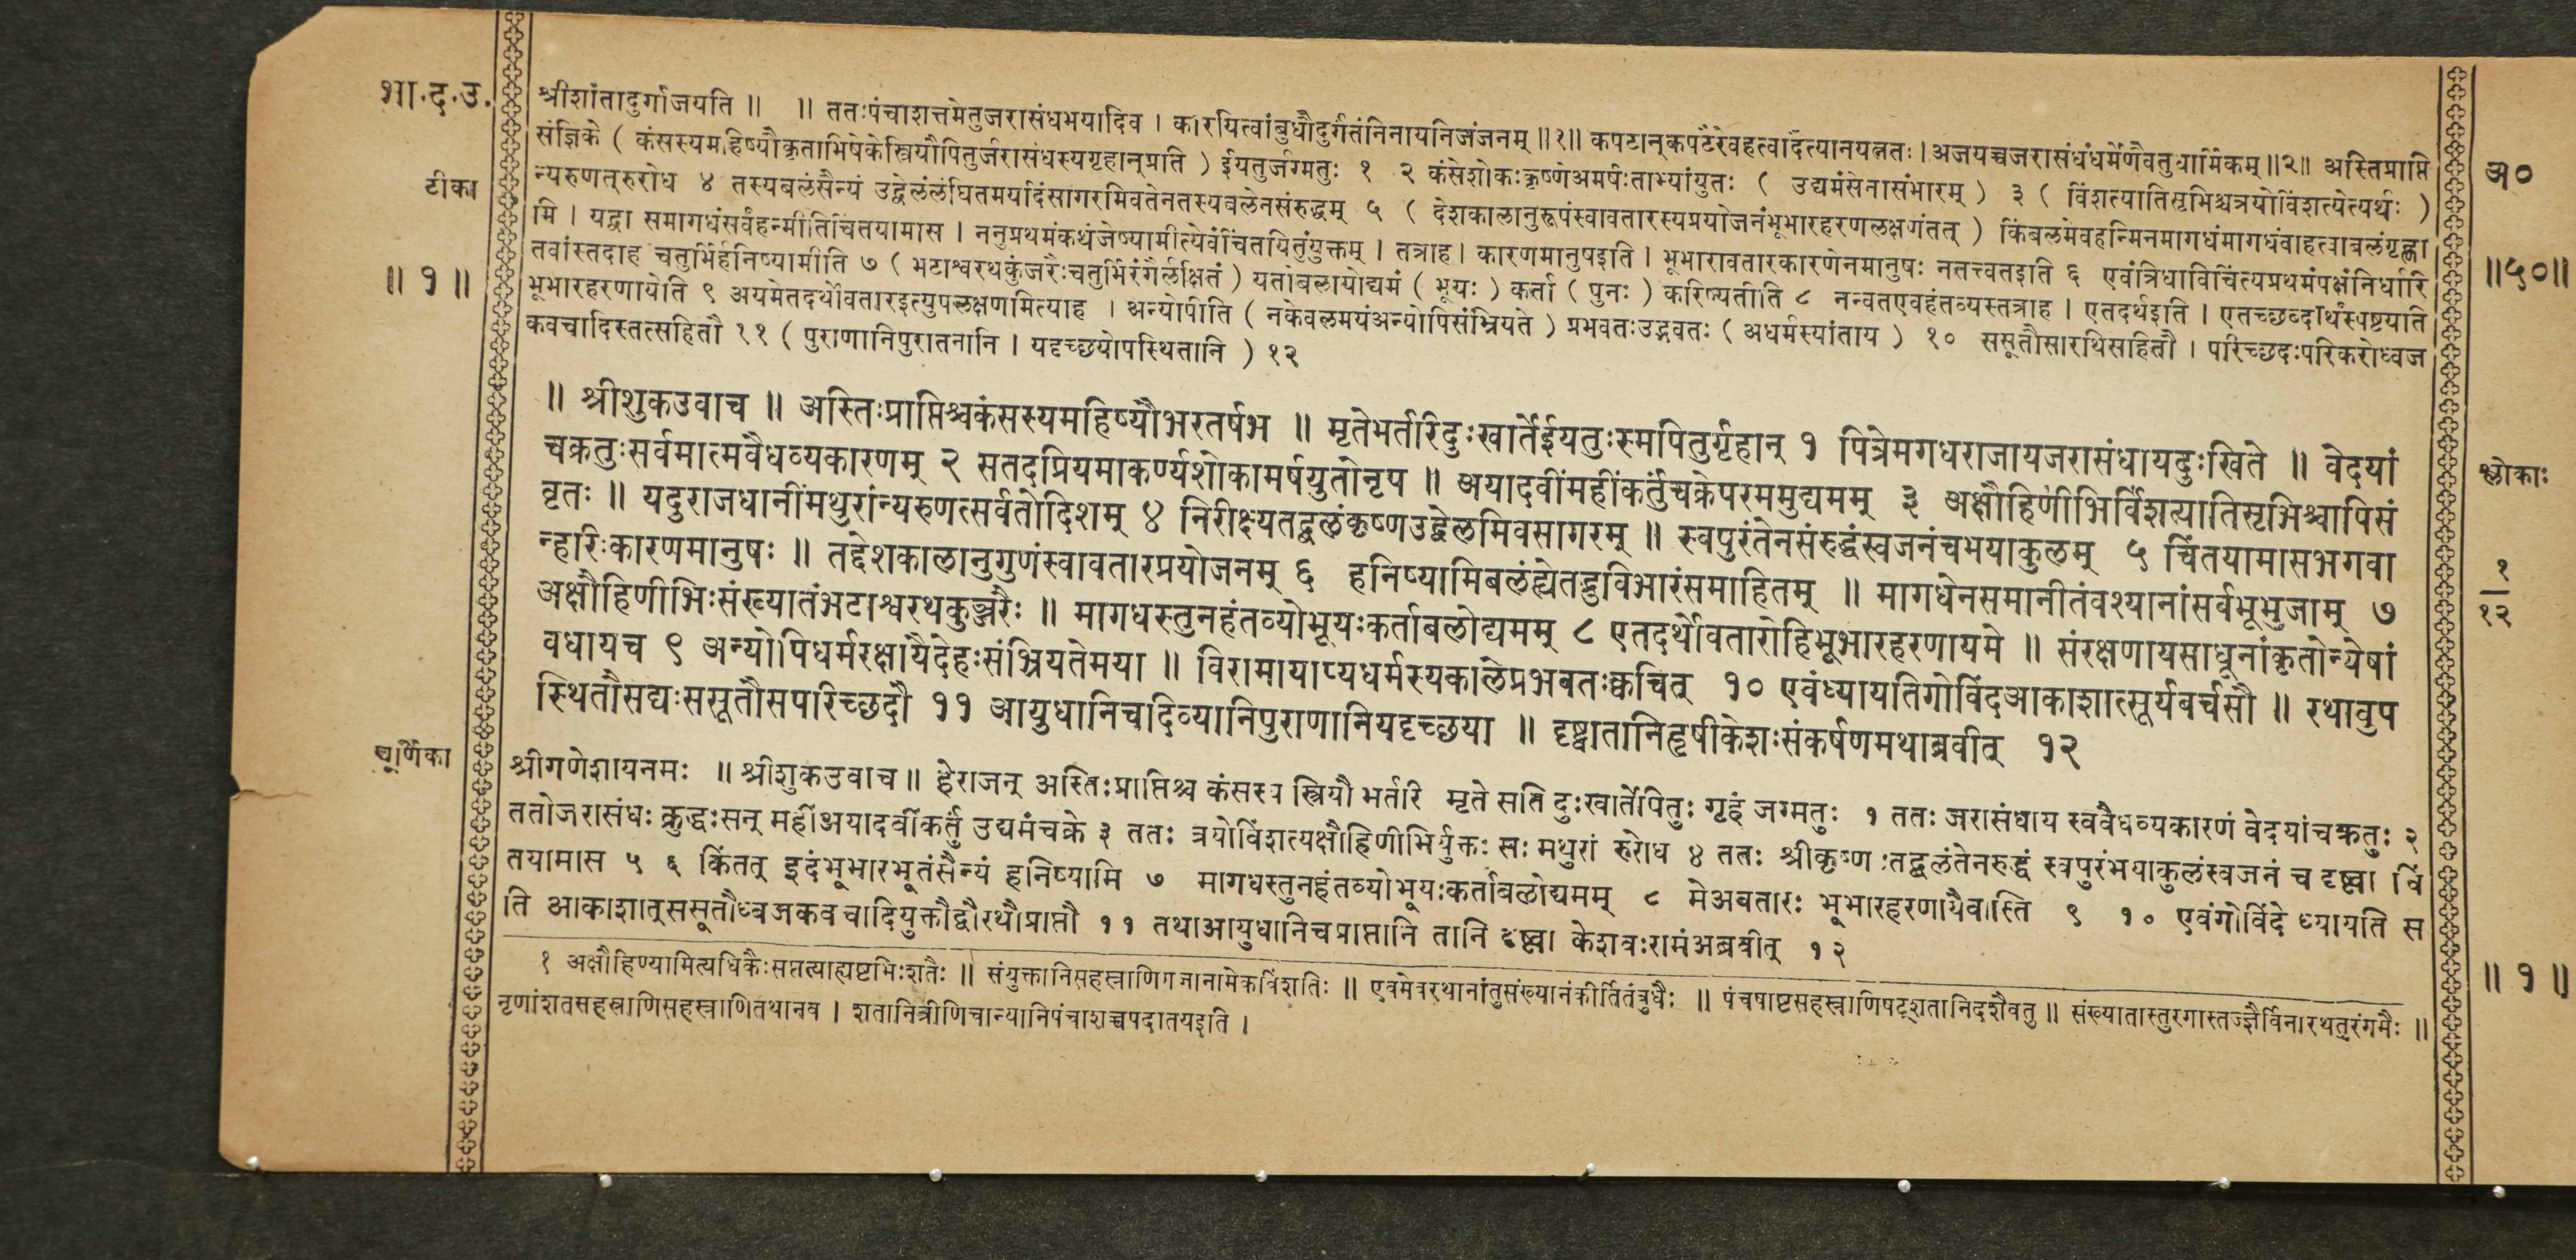 भा.द.उ.
श्रीशांतादुर्गाजयति ॥ ॥ ततःपंचाशत्तमेतुजरासंधभयादिव । कारयित्वांबुधौदुर्गंतंनिनायनिजंजनम् ॥१॥ कपटान्कपटैरेवहत्वादैत्यानयत्नतः । अजयच्चजरासंधंधर्मेणैवतुधार्मिकम् ॥२॥ अस्तिप्राप्ति
संज्ञिके ( कंसस्यमहिष्यौकृताभिषेकेस्त्रियौपितुर्जरासंधस्यगृहान्प्रति ) ईयतुर्जग्मतुः १ २ कंसेशोकःकृष्णेअमर्षःताभ्यांयुतः ( उद्यमंसेनासंभारम् ) ३ ( विंशत्यातिसृभिश्चत्रयोविंशत्येत्यर्थः )
टीका
न्यरुणत्रुरोध ४ तस्यबलंसैन्यं उद्वेलंलंघितमर्यादंसागरमिवतेनतस्यबलेनसंरुद्धम् ५ ( देशकालानुरूपंस्वावतारस्यप्रयोजनंभूभारहरणलक्षणंतत् ) किंबलमेवहन्मिनमागधंमागधंवाहत्वाबलंगृह्णा
मि । यद्वा समागधंसर्वंहन्मीतिचिंतयामास । ननुप्रथमंकथंजेष्यामीत्येवंचिंतयितुंयुक्तम् । तत्राह । कारणमानुषइति । भूभारावतारकारणेनमानुषः नतत्त्वतइति ६ एवंत्रिधाविचिंत्यप्रथमंपक्षंनिर्धारि
तवांस्तदाह चतुर्भिर्हनिष्यामीति ७ ( भटाश्वरथकुंजरैःचतुर्भिरंगैर्लक्षितं ) यतोबलायोद्यमं ( भूयः ) कर्ता ( पुनः ) करिष्यतीति ८ नन्वतएवहंतव्यस्तत्राह । एतदर्थइति । एतच्छब्दार्थंस्पष्टयति
॥ १ ॥
भूभारहरणायेति ९ अयमेतदर्थोवतारइत्युपलक्षणमित्याह । अन्योपीति ( नकेवलमयंअन्योपिसंभ्रियते ) प्रभवतःउद्भवतः ( अधर्मस्यांताय ) १० ससूतौसारथिसहितौ । परिच्छदःपरिकरोध्वज
कवचादिस्तत्सहितौ ११ ( पुराणानिपुरातनानि । यदृच्छयोपस्थितानि ) १२
अ०
॥५०॥
॥ श्रीशुकउवाच ॥ अस्तिःप्राप्तिश्चकंसस्यमहिष्यौभरतर्षभ ॥ मृतेभर्तरिदुःखार्तेईयतुःस्मपितुर्गृहान् १ पित्रेमगधराजायजरासंधायदुःखिते ॥ वेदयां
चक्रतुःसर्वमात्मवैधव्यकारणम् २ सतदप्रियमाकर्ण्यशोकामर्षयुतोनृप ॥ अयादवींमहींकर्तुंचक्रेपरममुद्यमम् ३ अक्षौहिणीभिर्विंशत्यातिसृभिश्चापिसं
श्लोकाः
वृतः ॥ यदुराजधानींमथुरांन्यरुणत्सर्वतोदिशम् ४ निरीक्ष्यतद्बलंकृष्णउद्वेलमिवसागरम् ॥ स्वपुरंतेनसंरुद्धंस्वजनंचभयाकुलम् ५ चिंतयामासभगवा
न्हरिःकारणमानुषः ॥ तद्देशकालानुगुणंस्वावतारप्रयोजनम् ६ हनिष्यामिबलंह्येतद्भुविभारंसमाहितम् ॥ मागधेनसमानीतंवश्यानांसर्वभूभुजाम् ७
१
१२
अक्षौहिणीभिःसंख्यातंभटाश्वरथकुञ्जरैः ॥ मागधस्तुनहंतव्योभूयःकर्ताबलोद्यमम् ८ एतदर्थोवतारोहिभूभारहरणायमे ॥ संरक्षणायसाधूनांकृतोन्येषां
वधायच ९ अन्योपिधर्मरक्षायैदेहःसंभ्रियतेमया ॥ विरामायाप्यधर्मस्यकालेप्रभवतःक्वचित् १० एवंध्यायतिगोविंदआकाशात्सूर्यवर्चसौ ॥ रथावुप
स्थितौसद्यःससूतौसपरिच्छदौ ११ आयुधानिचदिव्यानिपुराणानियदृच्छया ॥ दृष्ट्वातानिहृषीकेशःसंकर्षणमथाब्रवीत् १२
चूर्णिका
श्रीगणेशायनमः ॥ श्रीशुकउवाच ॥ हेराजन् अस्तिःप्राप्तिश्च कंसस्य स्त्रियौ भर्तरि मृते सति दुःखार्तेपितुः गृहं जग्मतुः १ ततः जरासंधाय स्ववैधव्यकारणं वेदयांचक्रतुः २
ततोजरासंधः क्रुद्धःसन् महींअयादवींकर्तुं उद्यमंचक्रे ३ ततः त्रयोविंशत्यक्षौहिणीभिर्युक्तः सः मथुरां रुरोध ४ ततः श्रीकृष्णःतद्बलंतेनरुद्धं स्वपुरंभयाकुलंस्वजनं च दृष्ट्वा चिं
तयामास ५ ६ किंतत् इदंभूभारभूतंसैन्यं हनिष्यामि ७ मागधस्तुनहंतव्योभूयःकर्ताबलोद्यमम् ८ मेअवतारः भूभारहरणायैवास्ति ९ १० एवंगोविंदे ध्यायति स
ति आकाशात्ससूतौध्वजकवचादियुक्तौद्वौरथौप्राप्तौ ११ तथाआयुधानिचप्राप्तानि तानि दृष्ट्वा केशवःरामंअब्रवीत् १२
१ अक्षौहिण्यामित्यधिकैःसप्तत्याह्यष्टभिःशतैः ॥ संयुक्तानिसहस्त्राणिगजानामेकविंशतिः ॥ एवमेवरथानांतुसंख्यानंकीर्तितंबुधैः ॥ पंचषष्टिसहस्त्राणिषट्शतानिदशैवतु ॥ संख्यातास्तुरगास्तज्ज्ञैर्विनारथतुरंगमैः ॥
नृणांशतसहस्त्राणिसहस्त्राणितथानव । शतानित्रीणिचान्यानिपंचाशच्चपदातयइति ।
॥ १ ॥